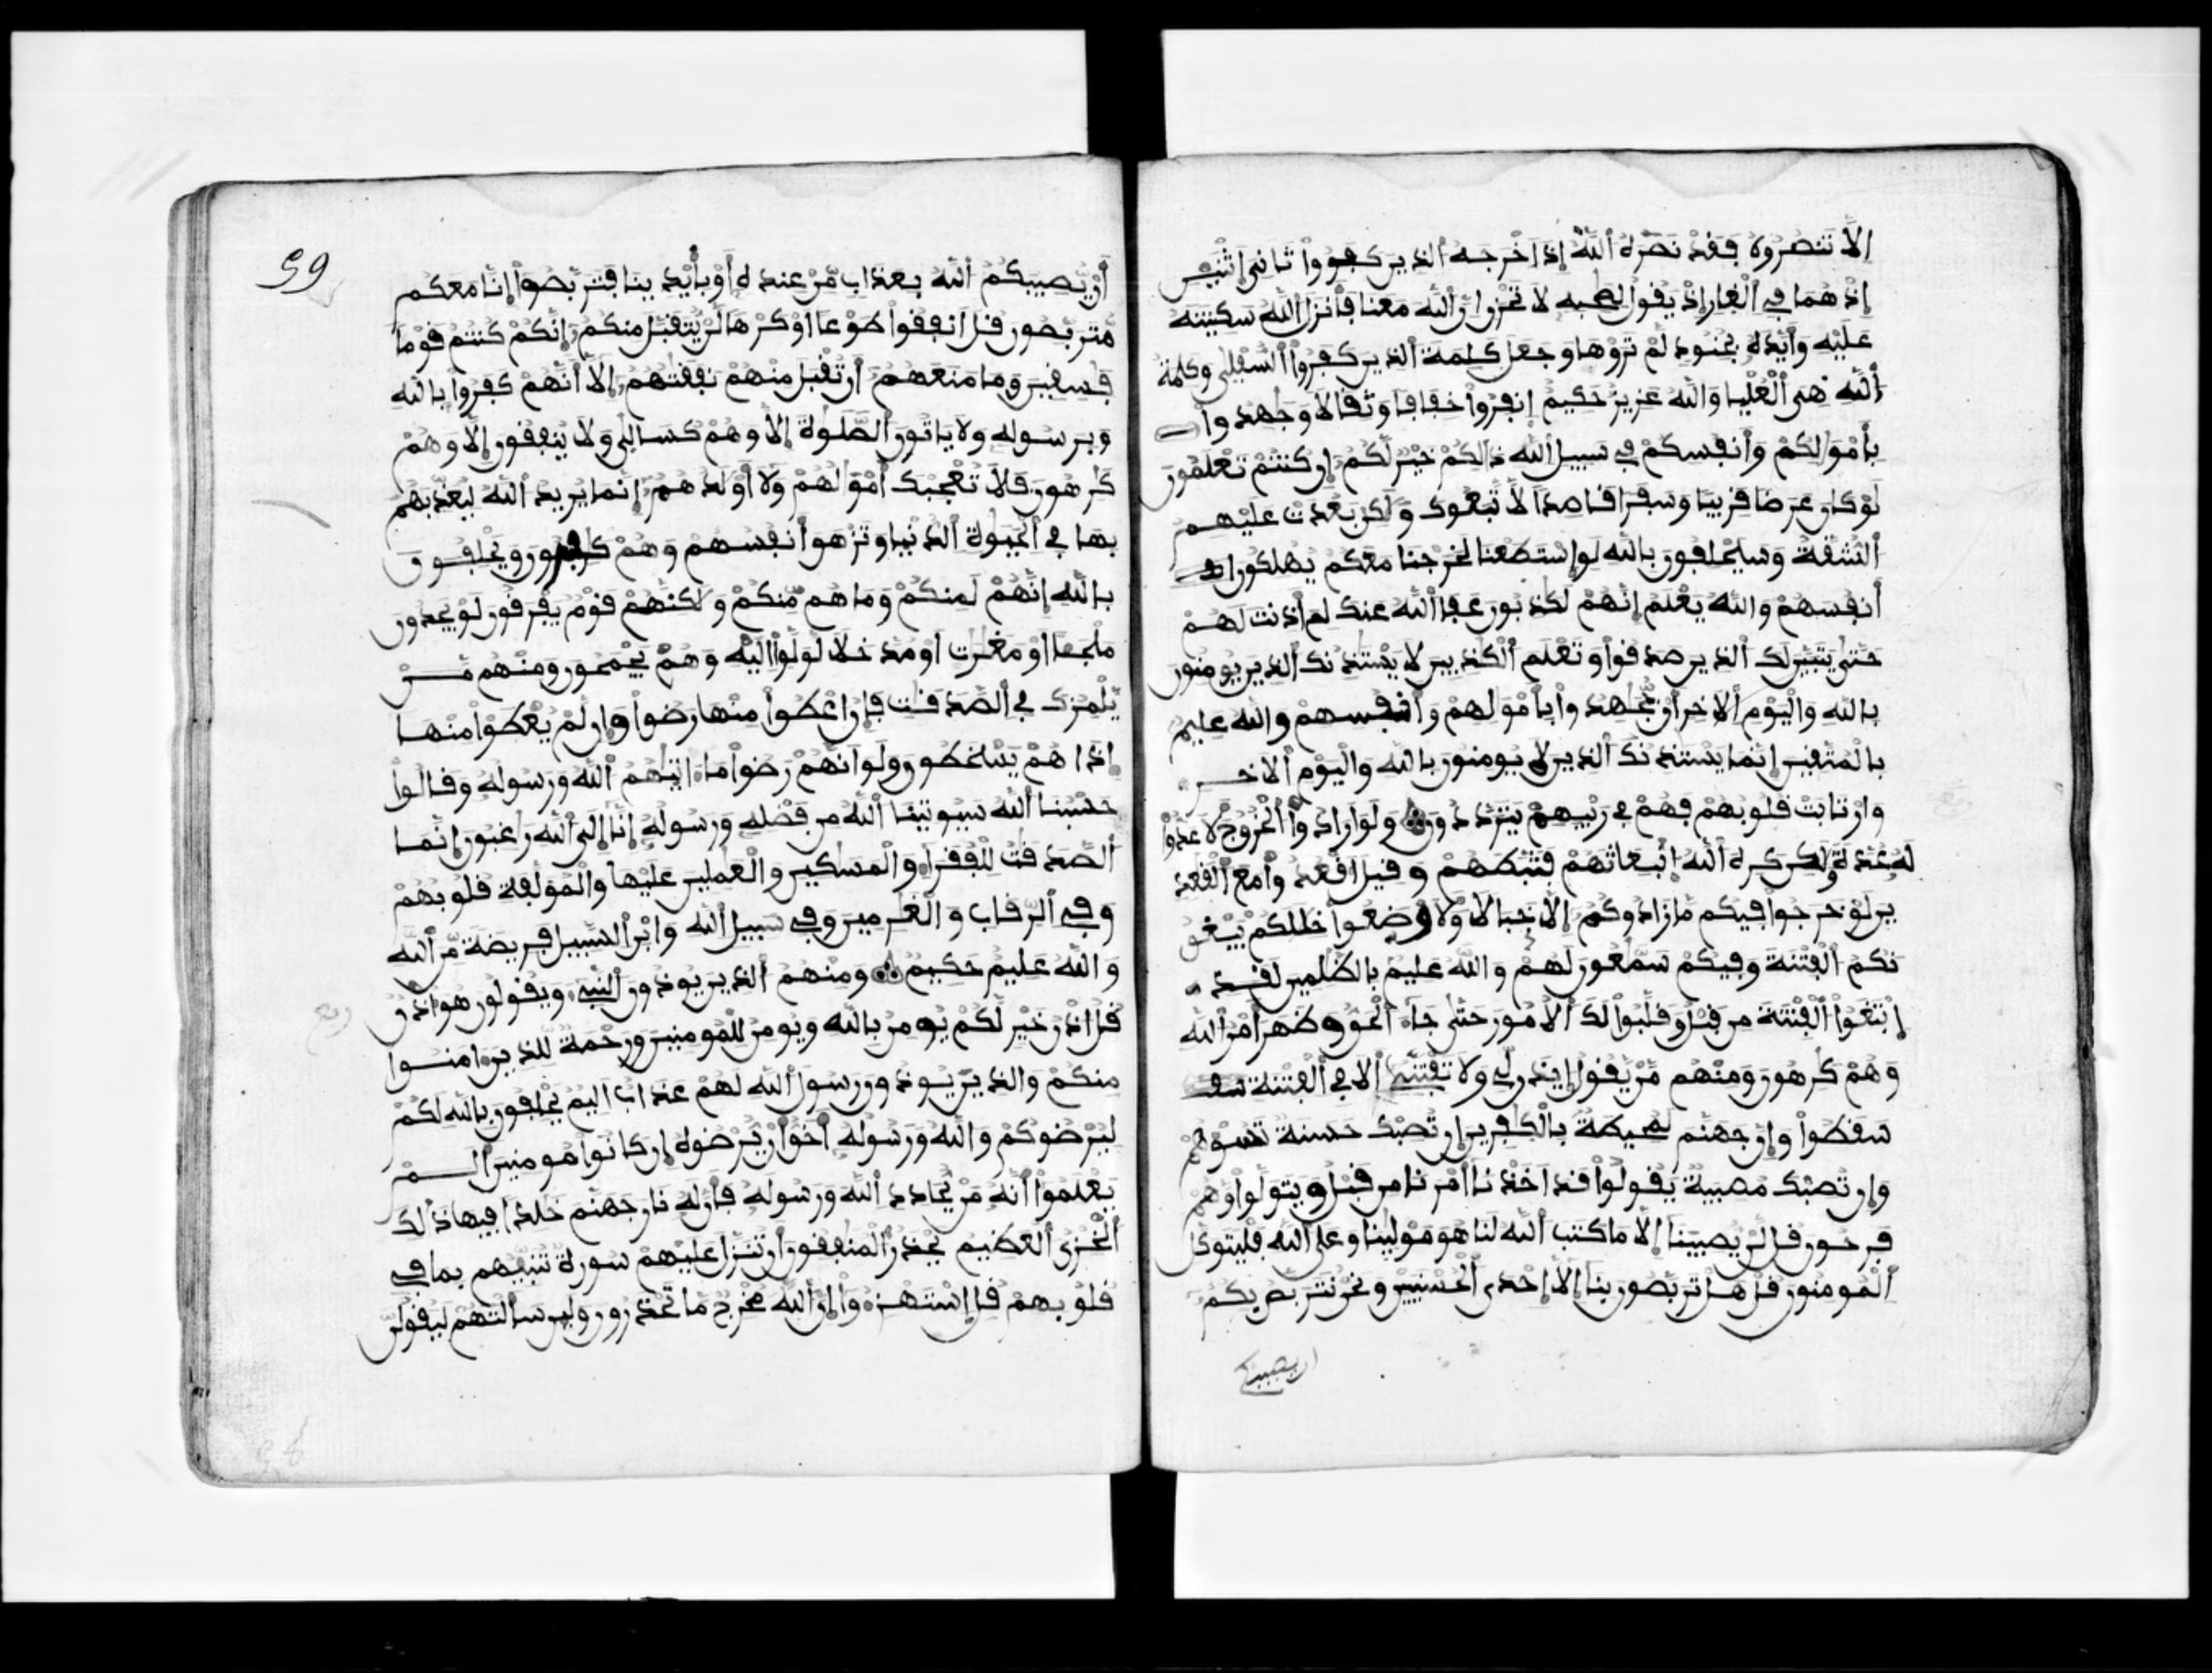 إلا تنصروه فقد نصره الله إذ اخرجه الذين كفروا ثاني اثنين
إذ هما في الغار إذ يقول لصحبه لا تحزن إن الله معنا فأنزل الله سكينته
عليه وأيده بجنود لم تروها وجعل كلمة الذين كفروا السفلى وكلمة
الله هي العليا والله عزيز حكيم إنفروا خفافا وثقالا وجهدوا
بأموالكم وأنفسكم في سبيل الله ذالكم خير لكم إن كنتم تعلمون
لو كان عرضا قريبا وسفرا قاصدا لاتبعوك ولكن بعدت عليهم
الشقة وسيحلفون بالله لو إستطعنا لخرجنا معكم يهلكون
أنفسهم والله يعلم إنهم لكذبون عفا الله عنك لم أذنت لهم
حتى يتبين لك الذين صدقوا وتعلم الكذبين لا يستذنك الذين يومنون
بالله واليوم الاخر أن يجهدوا بأموالهم وأنفسهم والله عليم
بالمتقين إنما يستذنك الذين لا يومنون بالله واليوم الاخر
وارتابت قلوبهم فهم في ريبهم يترددون ولو ارادوا الخروج لأعدوا
له عدة ولكن كره الله انبعاثهم فثبطهم وقيل اقعدوا مع القعد
ين لو خرجوا فيكم ما زادوكم إلا خبالا ولأوضعوا خللكم يبغو
نكم الفتنة وفيكم سمعون لهم والله عليم بالظلمين لقد
إبتغوا الفتنة من قبل وقلبوا لك الأمور حتى جاء الحق وظهر أمر الله
وهم كرهون ومنهم من يقول إيذن لي ولا تفتني ألا في الفتنة
سقطوا وإن جهنم لمحيطة بالكفرين إن تصبك حسنة تسوهم
وإن تصبك مصيبة يقولوا قد اخذنا أمرنا من قبل ويتولوا وهم
فرحون قل لن يصيبنا إلا ما كتب الله لنا هو مولينا وعلى الله فليتوكل
المومنون قل هل تربصون بنا إلا إحدى الحسنيين ونحن نتربص بكم
ان يصيبكم
59
أن يصيبكم الله بعذاب من عنده أو بأيدينا فتربصوا إنا معكم
متربصون قل أنفقوا طوعا أو كرها لن يتقبل منكم إنكم كنتم قوما
فسقين وما منعهم أن تقبل منهم نفقتهم إلا أنهم كفروا بالله
وبرسوله ولا ياتون الصلوة إلا وهم كسالى ولا ينفقون إلا وهم
كرهون فلا تعجبك أموالهم ولا أولدهم إنما يريد الله ليعذبهم
بها في الحيوة الدنيا وتزهق أنفسهم وهم كفرون ويحلفون
بالله إنهم لمنكم وما هم منكم ولكنهم قوم يفرقون لو يجدون
ملجئا أو مغرت أو مدخلا لولوا اليه وهم يجمحون ومنهم من
يلمزك في الصدقت فإن اعطوا منها رضوا وإن لم يعطوا منها
إذا هم يسخطون ولو انهم رضوا ما اتيهم الله ورسوله وقالوا
حسبنا الله سيوتينا الله من فضله ورسوله إنا إلى الله راغبون إنما
الصدقت للفقراء والمسكين والعملين عليها والمولفة قلوبهم
وفي الرقاب والغرمين وفي سبيل الله وابن السبيل فريضة من الله
والله عليم حكيم ومنهم الذين يوذون النبيء ويقولون هو اذن
قل اذن خير لكم يومن بالله ويومن للمومنين ورحمة للذين ءامنوا
ربع
منكم والذين يوذون رسول الله لهم عذاب اليم يحلفون بالله لكم
ليرضوكم والله ورسوله أحق أن يرضوه إن كانوا مومنين الم
يعلموا أنه من يحادد الله ورسوله فأن له نار جهنم خلدا فيها ذالك
الخزي العظيم يحذر المنفقون أن تنزل عليهم سورة تنبيهم بما في
قلوبهم قل إستهزءوا إن الله مخرج ما تحذرون ولين سالتهم ليقولن